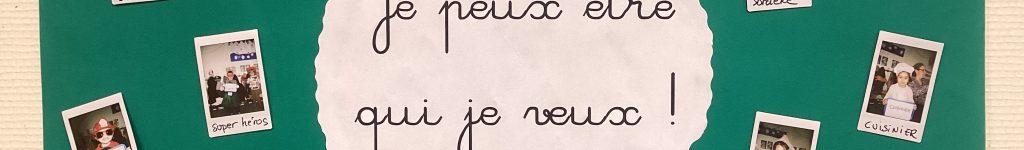 je peux être
qui je veux !
super héros
CUISINIER